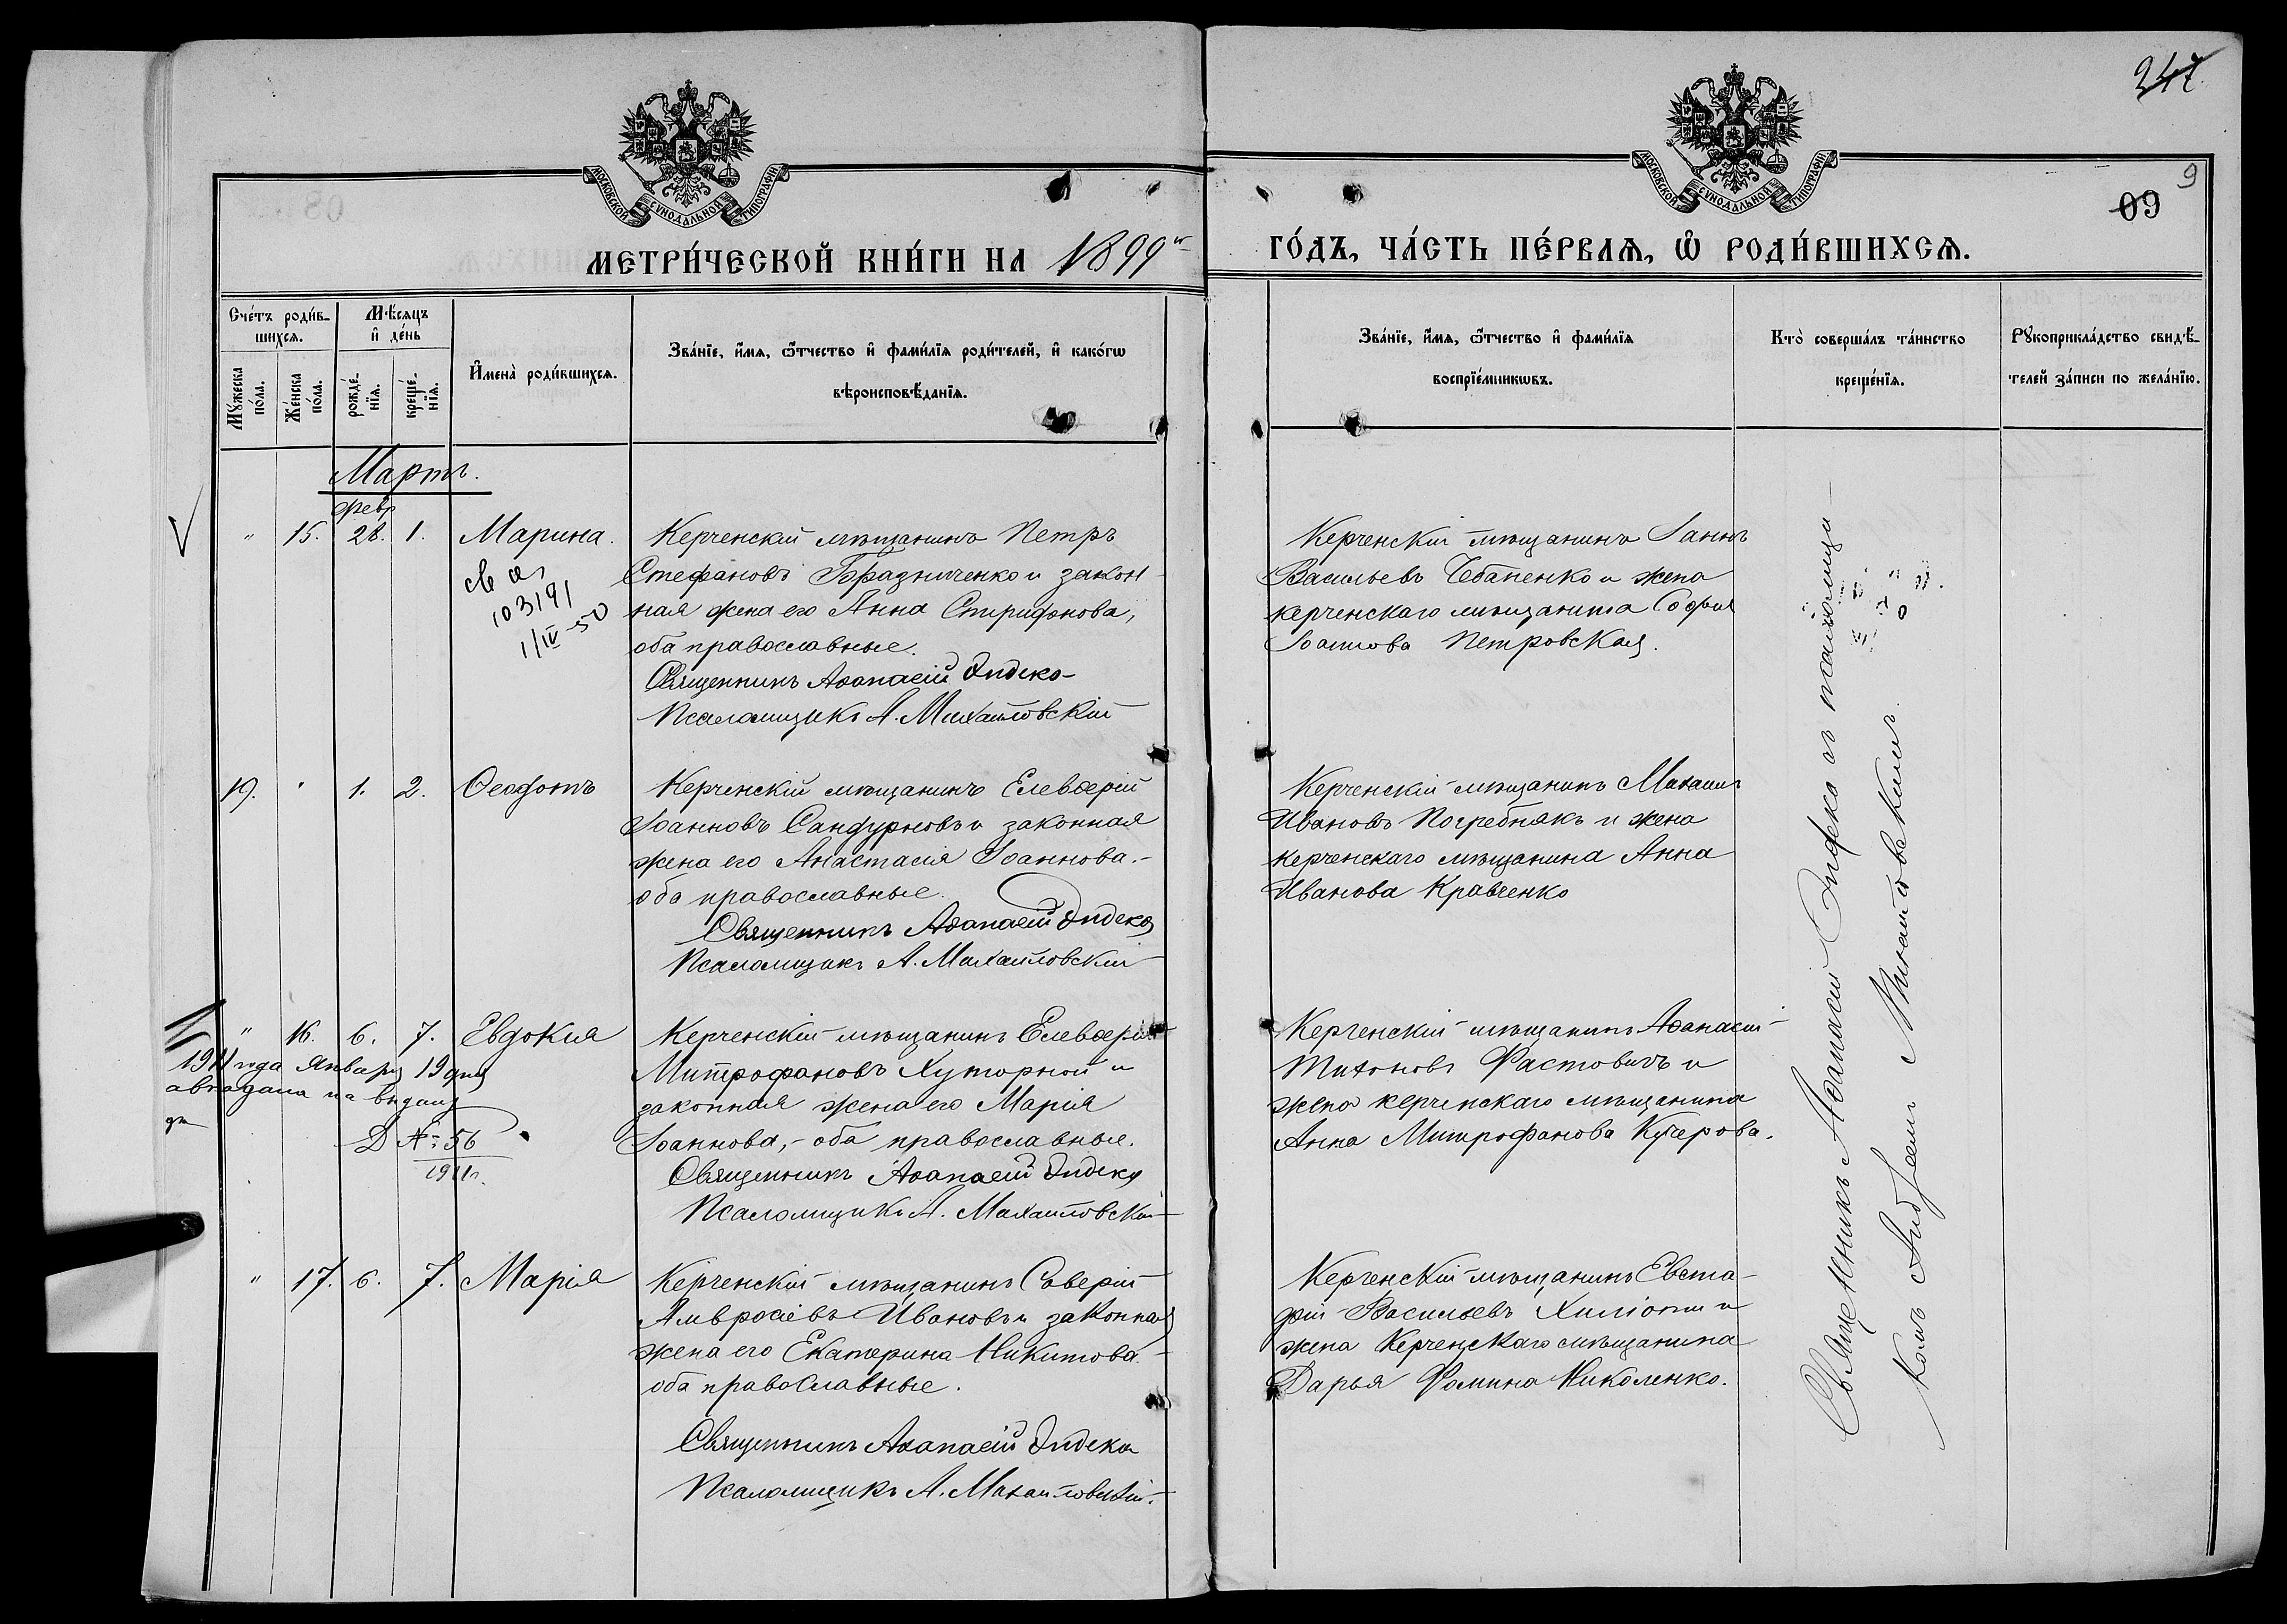 247.
9
09
МОСКОВСКОЙ СѴНОДАЛЬНОЙ ТИПОГРАФІИ
МОСКОВСКОЙ СѴНОДАЛЬНОЙ ТИПОГРАФІИ
МЕТРИ́ЧЕСКОЙ КНИ́ГИ НА 1899й
ГО́ДЪ, ЧА́СТЬ ПЕ́РВАѦ, Ѽ РОДИ́ВШИХСѦ.
Сче́тъ роди́в-
шихсѧ.
Мꙋ́жеска
по́ла.
Же́нска
по́ла.
Мѣ́сѧцъ
и҆ де́нь
рожде́-
нїѧ.
креще́-
нїѧ.
И҆мена̀ роди́вшихсѧ.
Зва́нїе, и҆́мѧ, ѻ҆́тчество и҆ фами́лїѧ роди́телей, и҆ како́гѡ
вѣроисповѣ́данїѧ.
Зва́нїе, и҆́мѧ, ѻ҆́тчество и҆ фами́лїѧ
воспрїе́мникѡвъ.
Кто̀ соверша́лъ та́инство
креще́нїѧ.
Рꙋкоприкла́дство свидѣ́-
телей за́писи по жела́нїю.
Мартъ.
февр
" 15. 28. 1. Марина.
103191
1/IV-50
Керченскій мѣщанинъ Петръ
Стефановъ Бразниченко и закон-
ная жена его Анна Спиридонова,
оба православные.
Священникъ Аѳанасій Эндека
Псаломщикъ А. Михайловскій
Керченскій мѣщанинъ Іаннъ
Васильевъ Чебаненко и жена
керченскаго мѣщанина Софья
Іоаннова Петровская.
19. " 1. 2. Ѳеофотъ
Керченскій мѣщанинъ Елевѳерій
Іоанновъ Сандурновъ и законная
жена его Анастасія Іоаннова.-
оба православные.
Священникъ Аѳанасій Эндека
Псаломщикъ А. Михайловскій
Керченскій мѣщанинъ Михаилъ
Ивановъ Погребнякъ и жена
керченскаго мѣщанина Анна
Иванова Кравченко
" 16. 6. 7. Евдокія
1911 года Января 19 дня
на выдачу
№ 56
1911г.
Керченскій мѣщанинъ Елевѳерій
Митрофановъ Хуторной и
законная жена его Марія
Іоаннова,- оба православные.
Священникъ Аѳанасій Эндека
Псаломщикъ А. Михайловскій
Керченскій мѣщанинъ Аѳанасій
Тихоновъ Фастовичъ и
жена керченскаго мѣщанина
Анна Митрофанова Кучерова.
" 17. 6. 7. Марія
Керченскій мѣщанинъ Саверій
Амвросіевъ Ивановъ и законная
жена его Екатерина Никитова
оба православные.
Священникъ Аѳанасій Эндека
Псаломщикъ А. Михайловскій.
Керченскій мѣщанинъ Евста-
фій Васильевъ Хиліопи и
жена Керченскаго мѣщанина
Дарья Фомина Николенко.
Священникъ Аѳанасій Эндека съ псаломщи-
комъ Андреемъ Михайловскимъ.